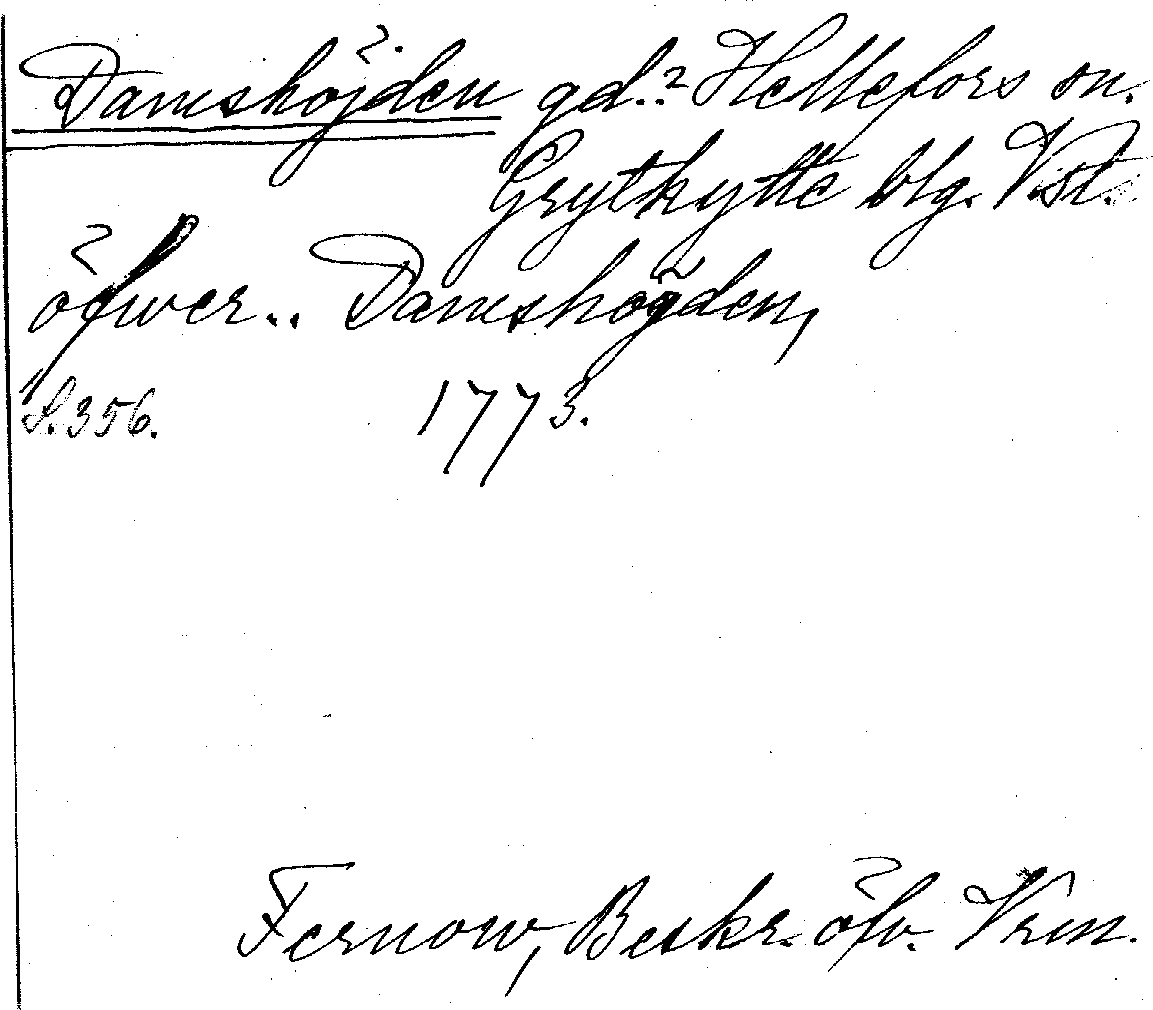 Damshöjden gd.? Hellefors sn.
Grythytte blg. Vstm.
öfwer.. Damshögden,
S. 356. 1773.
Fernow, Beskr. öfv. Vrm.